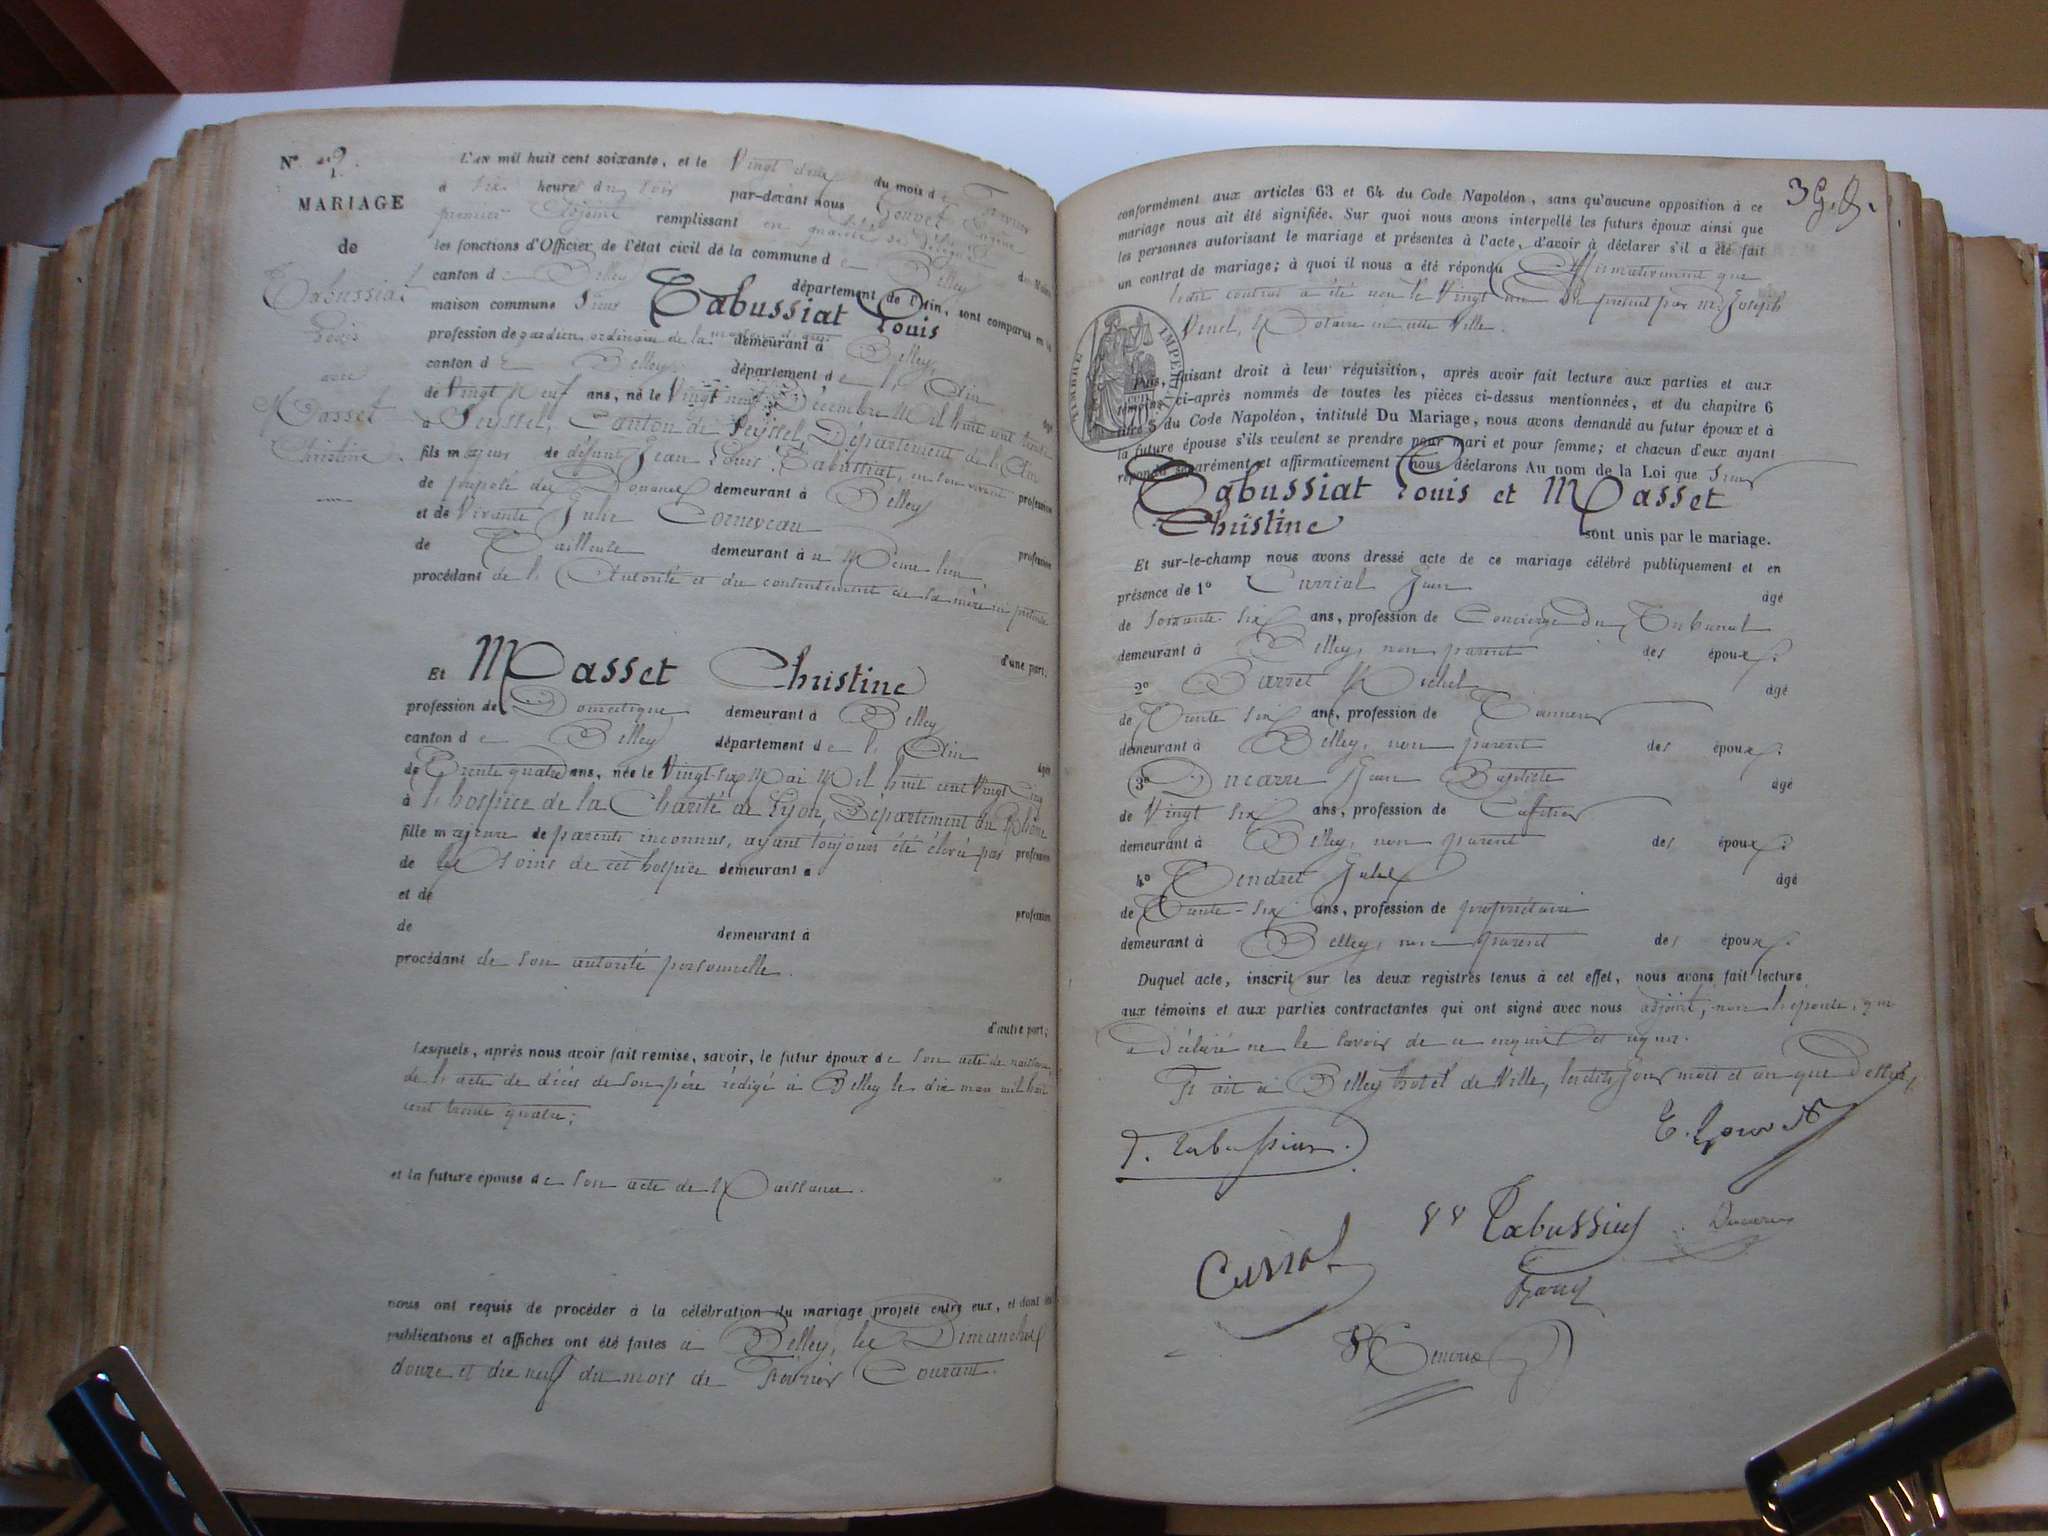 N° 9.
MARIAGE
de
Tabussiat
Louis
avec
Masset
Christine
L'an mil huit cent soixante, et le Vingt deux du mois de Février
à six heures du soir par-devant nous Gouvet Eugène
premier adjoint remplissant en qualité de
les fonctions d'Officier de l'état civil de la commune de Belley
canton de Belley département de l'Ain, sont comparus en la
maison commune Sieur Tabussiat Louis
profession de gardien ordinaire de la maison demeurant à Belley,
canton de Belley département de l'Ain
de Vingt Neuf ans, né le Vingt neuf Décembre Mil huit cent trente
à Seyssel, Canton de Seyssel, Département de l'Ain
fils majeur de défunt Jean Louis Tabussiat, en son vivant profession
de préposé des Douanes demeurant à Belley
et de Vivante Julie Corneveau profession
de Tailleuse demeurant à u Même lieu,
procédant de l'Autorité et du contentement de sa mère ici présente
d'une part.
Et Masset Christine
profession de Domestique demeurant à Belley
canton de Belley département de l'Ain âgée
de Trente quatre ans, née le Vingt-six Mai Mil huit cent Vingt Cinq
à l'hospice de la Charité de Lyon, Département du Rhône
fille majeure de parents inconnus, ayant toujours été élevée par profession
de les soins de cet hospice demeurant à
et de profession
de demeurant à
procédant de son autorité personnelle.
d'autre part;
Lesquels, après nous avoir fait remise, savoir, le futur époux de son acte de naissance,
de l'acte de décès de son père rédigé à Belley le dix mars mil huit
cent trente quatre;
et la future épouse de son acte de Naissance.
nous ont requis de procéder à la célébration du mariage projeté entre eux, et dont les
publications et affiches ont été faites à Belley, les Dimanches
douze et dix neuf du mois de Février Courant.
conformément aux articles 63 et 64 du Code Napoléon, sans qu'aucune opposition à ce
mariage nous ait été signifiée. Sur quoi nous avons interpellé les futurs époux ainsi que
les personnes autorisant le mariage et présentes à l'acte, d'avoir à déclarer s'il a été fait
un contrat de mariage; à quoi il nous a été répondu Affirmativement que
ledit contrat a été reçu le Vingt un du présent par Me Joseph
Vinet, Notaire en cette Ville.
TIMBRE IMPERIAL
Puis, faisant droit à leur réquisition, après avoir fait lecture aux parties et aux
témoins ci-après nommés de toutes les pièces ci-dessus mentionnées, et du chapitre 6
titre 5 du Code Napoléon, intitulé Du Mariage, nous avons demandé au futur époux et à
la future épouse s'ils veulent se prendre pour mari et pour femme; et chacun d'eux ayant
répondu séparément et affirmativement nous déclarons Au nom de la Loi que Sieur
Tabussiat Louis et Masset
Christine sont unis par le mariage.
Et sur-le-champ nous avons dressé acte de ce mariage célébré publiquement et en
présence de 1° Currial Jean âgé
de soixante-six ans, profession de Concierge du Tribunal
demeurant à Belley, non parent des époux.
2° Barret Michel âgé
de Trente six ans, profession de Tanneur
demeurant à Belley, non parent des époux.
3° Ducarre Jean Baptiste âgé
de Vingt six ans, profession de Cafetier
demeurant à Belley, non parent des époux.
4° Tendret Jules âgé
de Trente-six ans, profession de propriétaire
demeurant à Belley, non parent des époux.
Duquel acte, inscrit sur les deux registres tenus à cet effet, nous avons fait lecture
aux témoins et aux parties contractantes qui ont signé avec nous adjoint, non l'épouse, qui
a déclaré ne le savoir de ce enquise et requise.
Fait à Belley hotel de Ville, lesdits jour mois et an que Dessus.
Tabussiat
Currial
Tabussiat